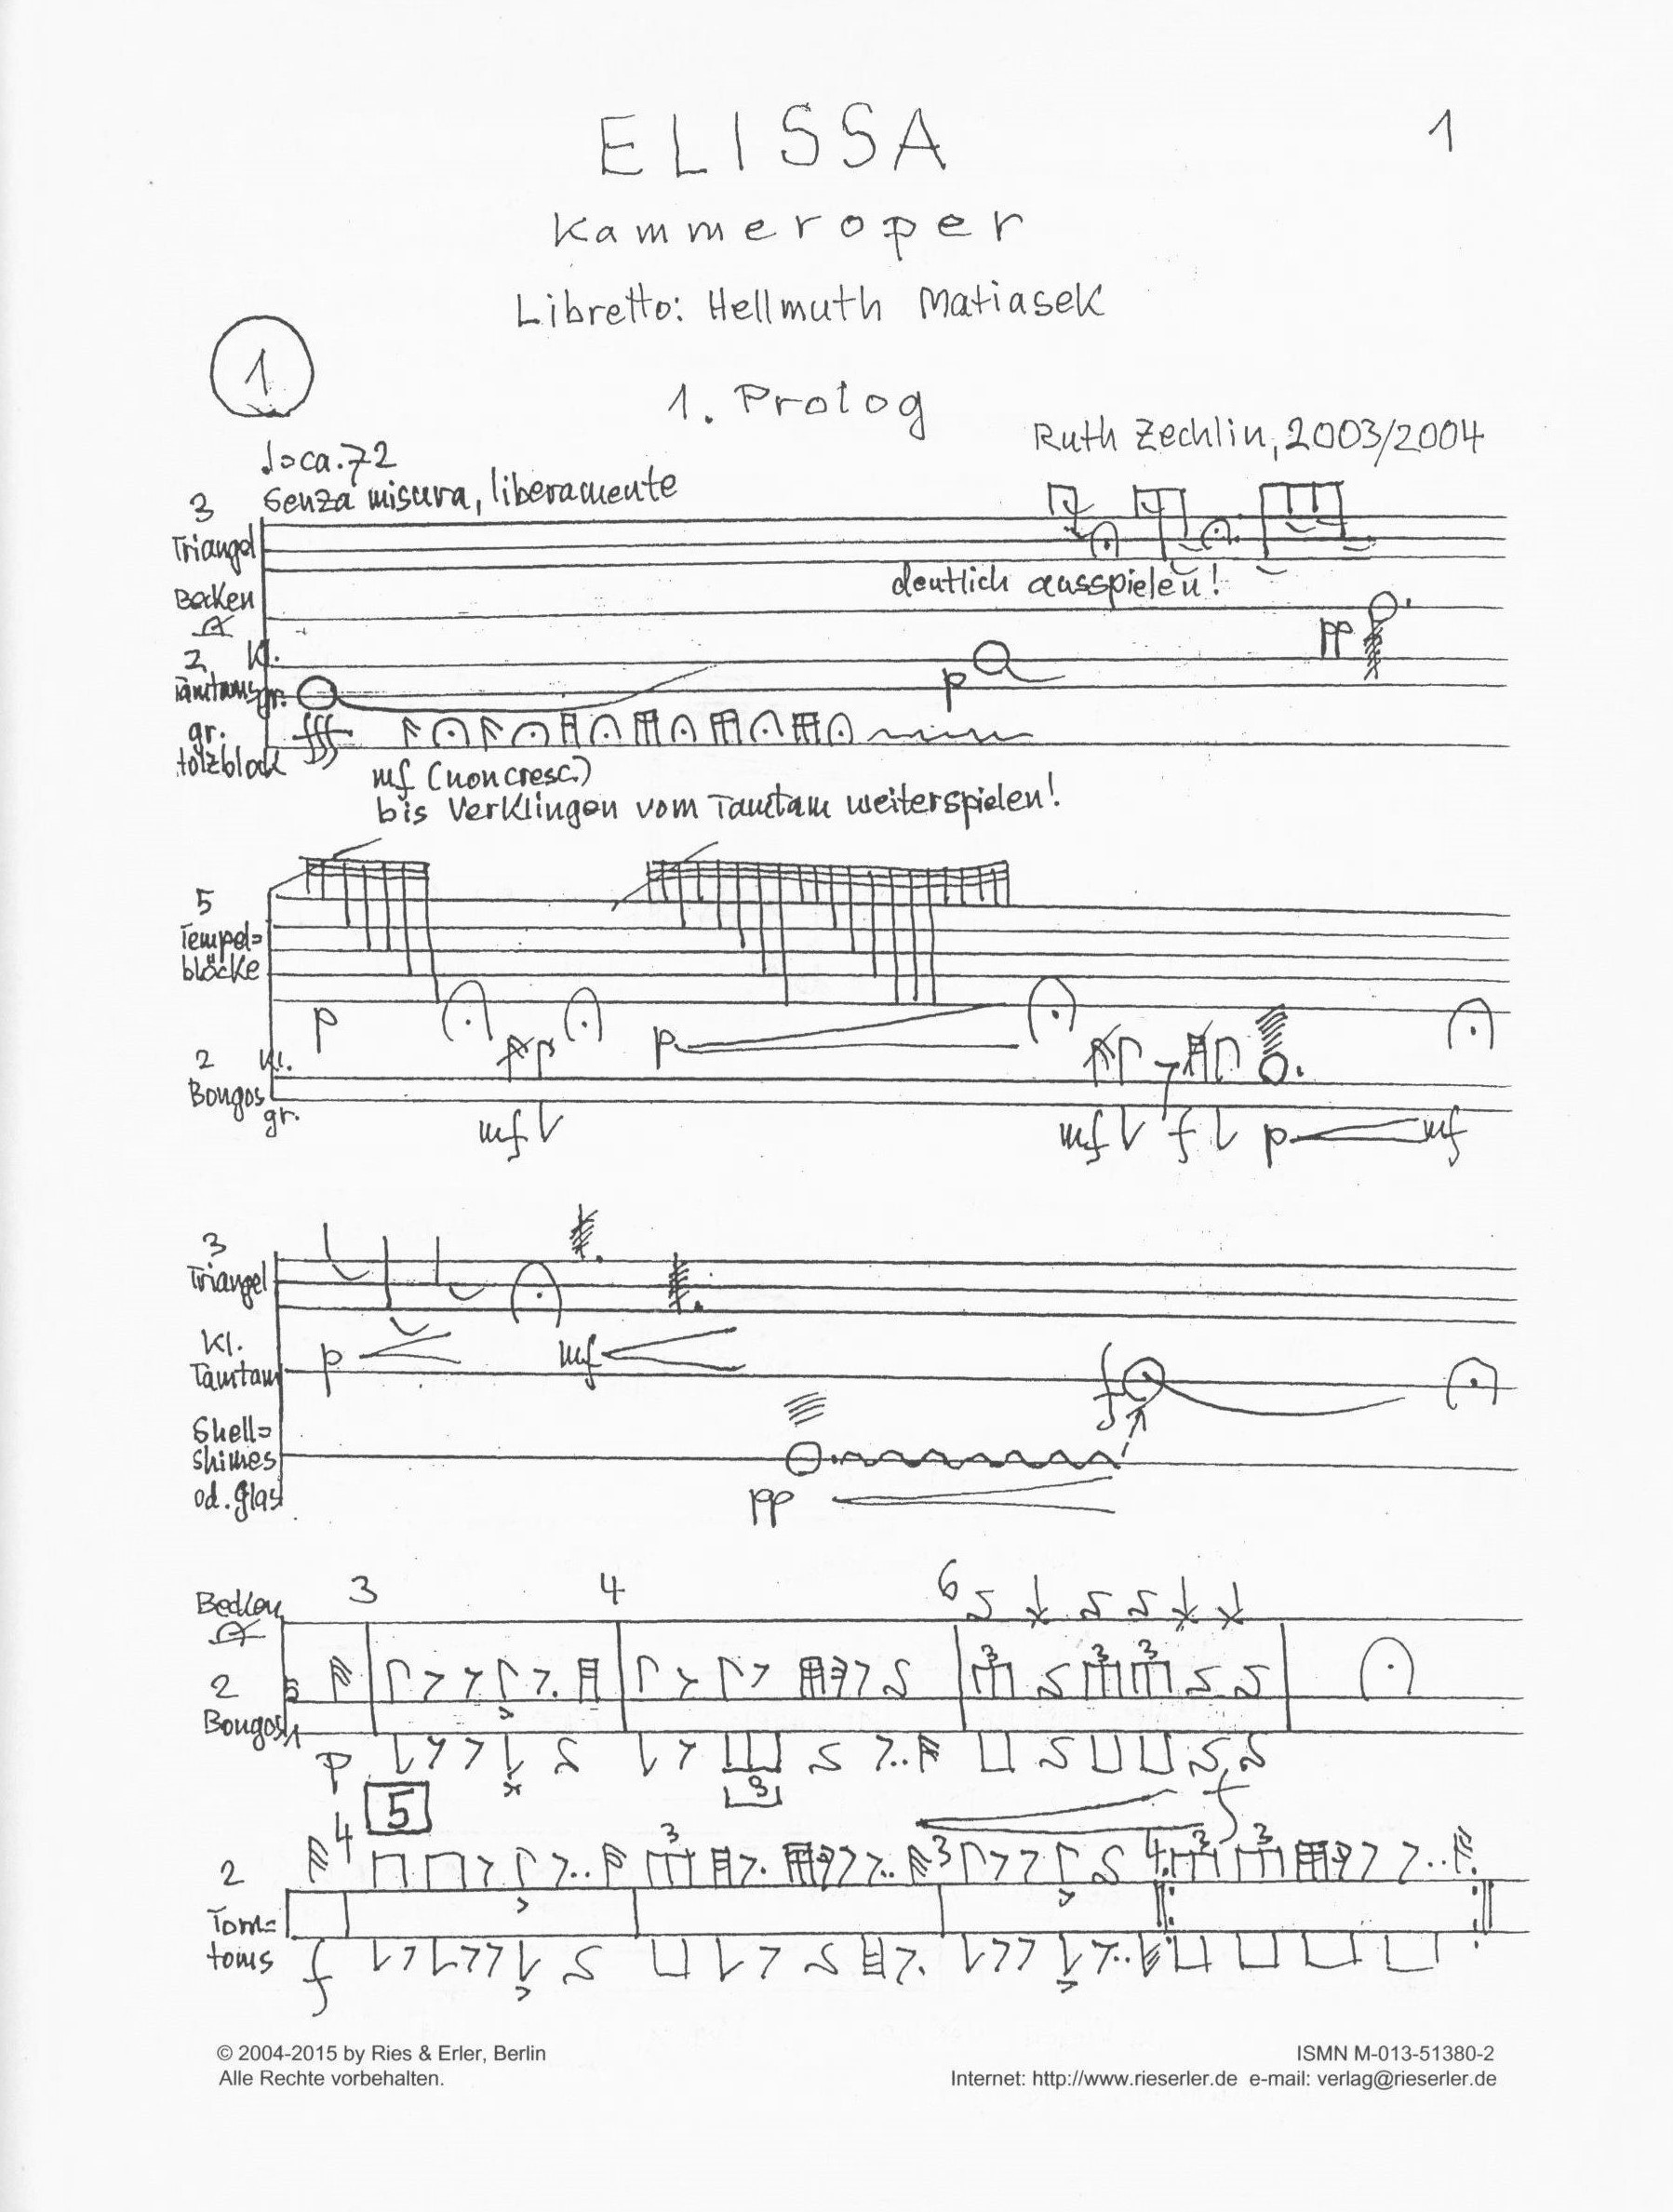 ELISSA
1
Kammeroper
Libretto: Hellmuth Matiasek
1
1. Prolog
Ruth Zechlin, 2003/2004
♩= ca. 72
Senza misura, liberamente
3
Triangel
deutlich ausspielen!
Becken
2 Kl.
Tamtams gr.
pp
p
gr.
Holzblock
fff
mf (non cresc.)
bis Verklingen vom Tamtam weiterspielen!
5
Tempel=
blöcke
p
p
2 Kl.
Bongos
gr.
mf
mf f p mf
3
Triangel
Kl.
Tamtam
p mf
f
Shell=
shimes
od. Glas
pp
Becken
3 4 6
2
Bongos
3 3 3
p
3
f
5
4 3 3 4 3 3
2
Tom=
toms
f
© 2004-2015 by Ries & Erler, Berlin
Alle Rechte vorbehalten.
ISMN M-013-51380-2
Internet: http://www.rieserler.de e-mail: verlag@rieserler.de